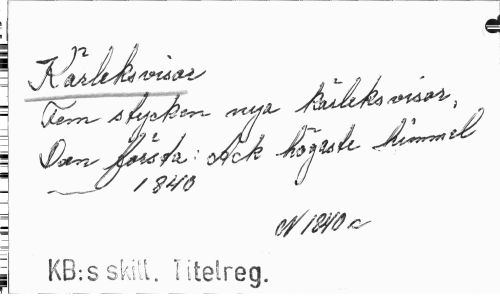 Kärleksvisor
Fem stycken nya kärleksvisor,
Den första: Ack högaste himmel
1840
N 1840 c
KB:s skill. Titelreg.